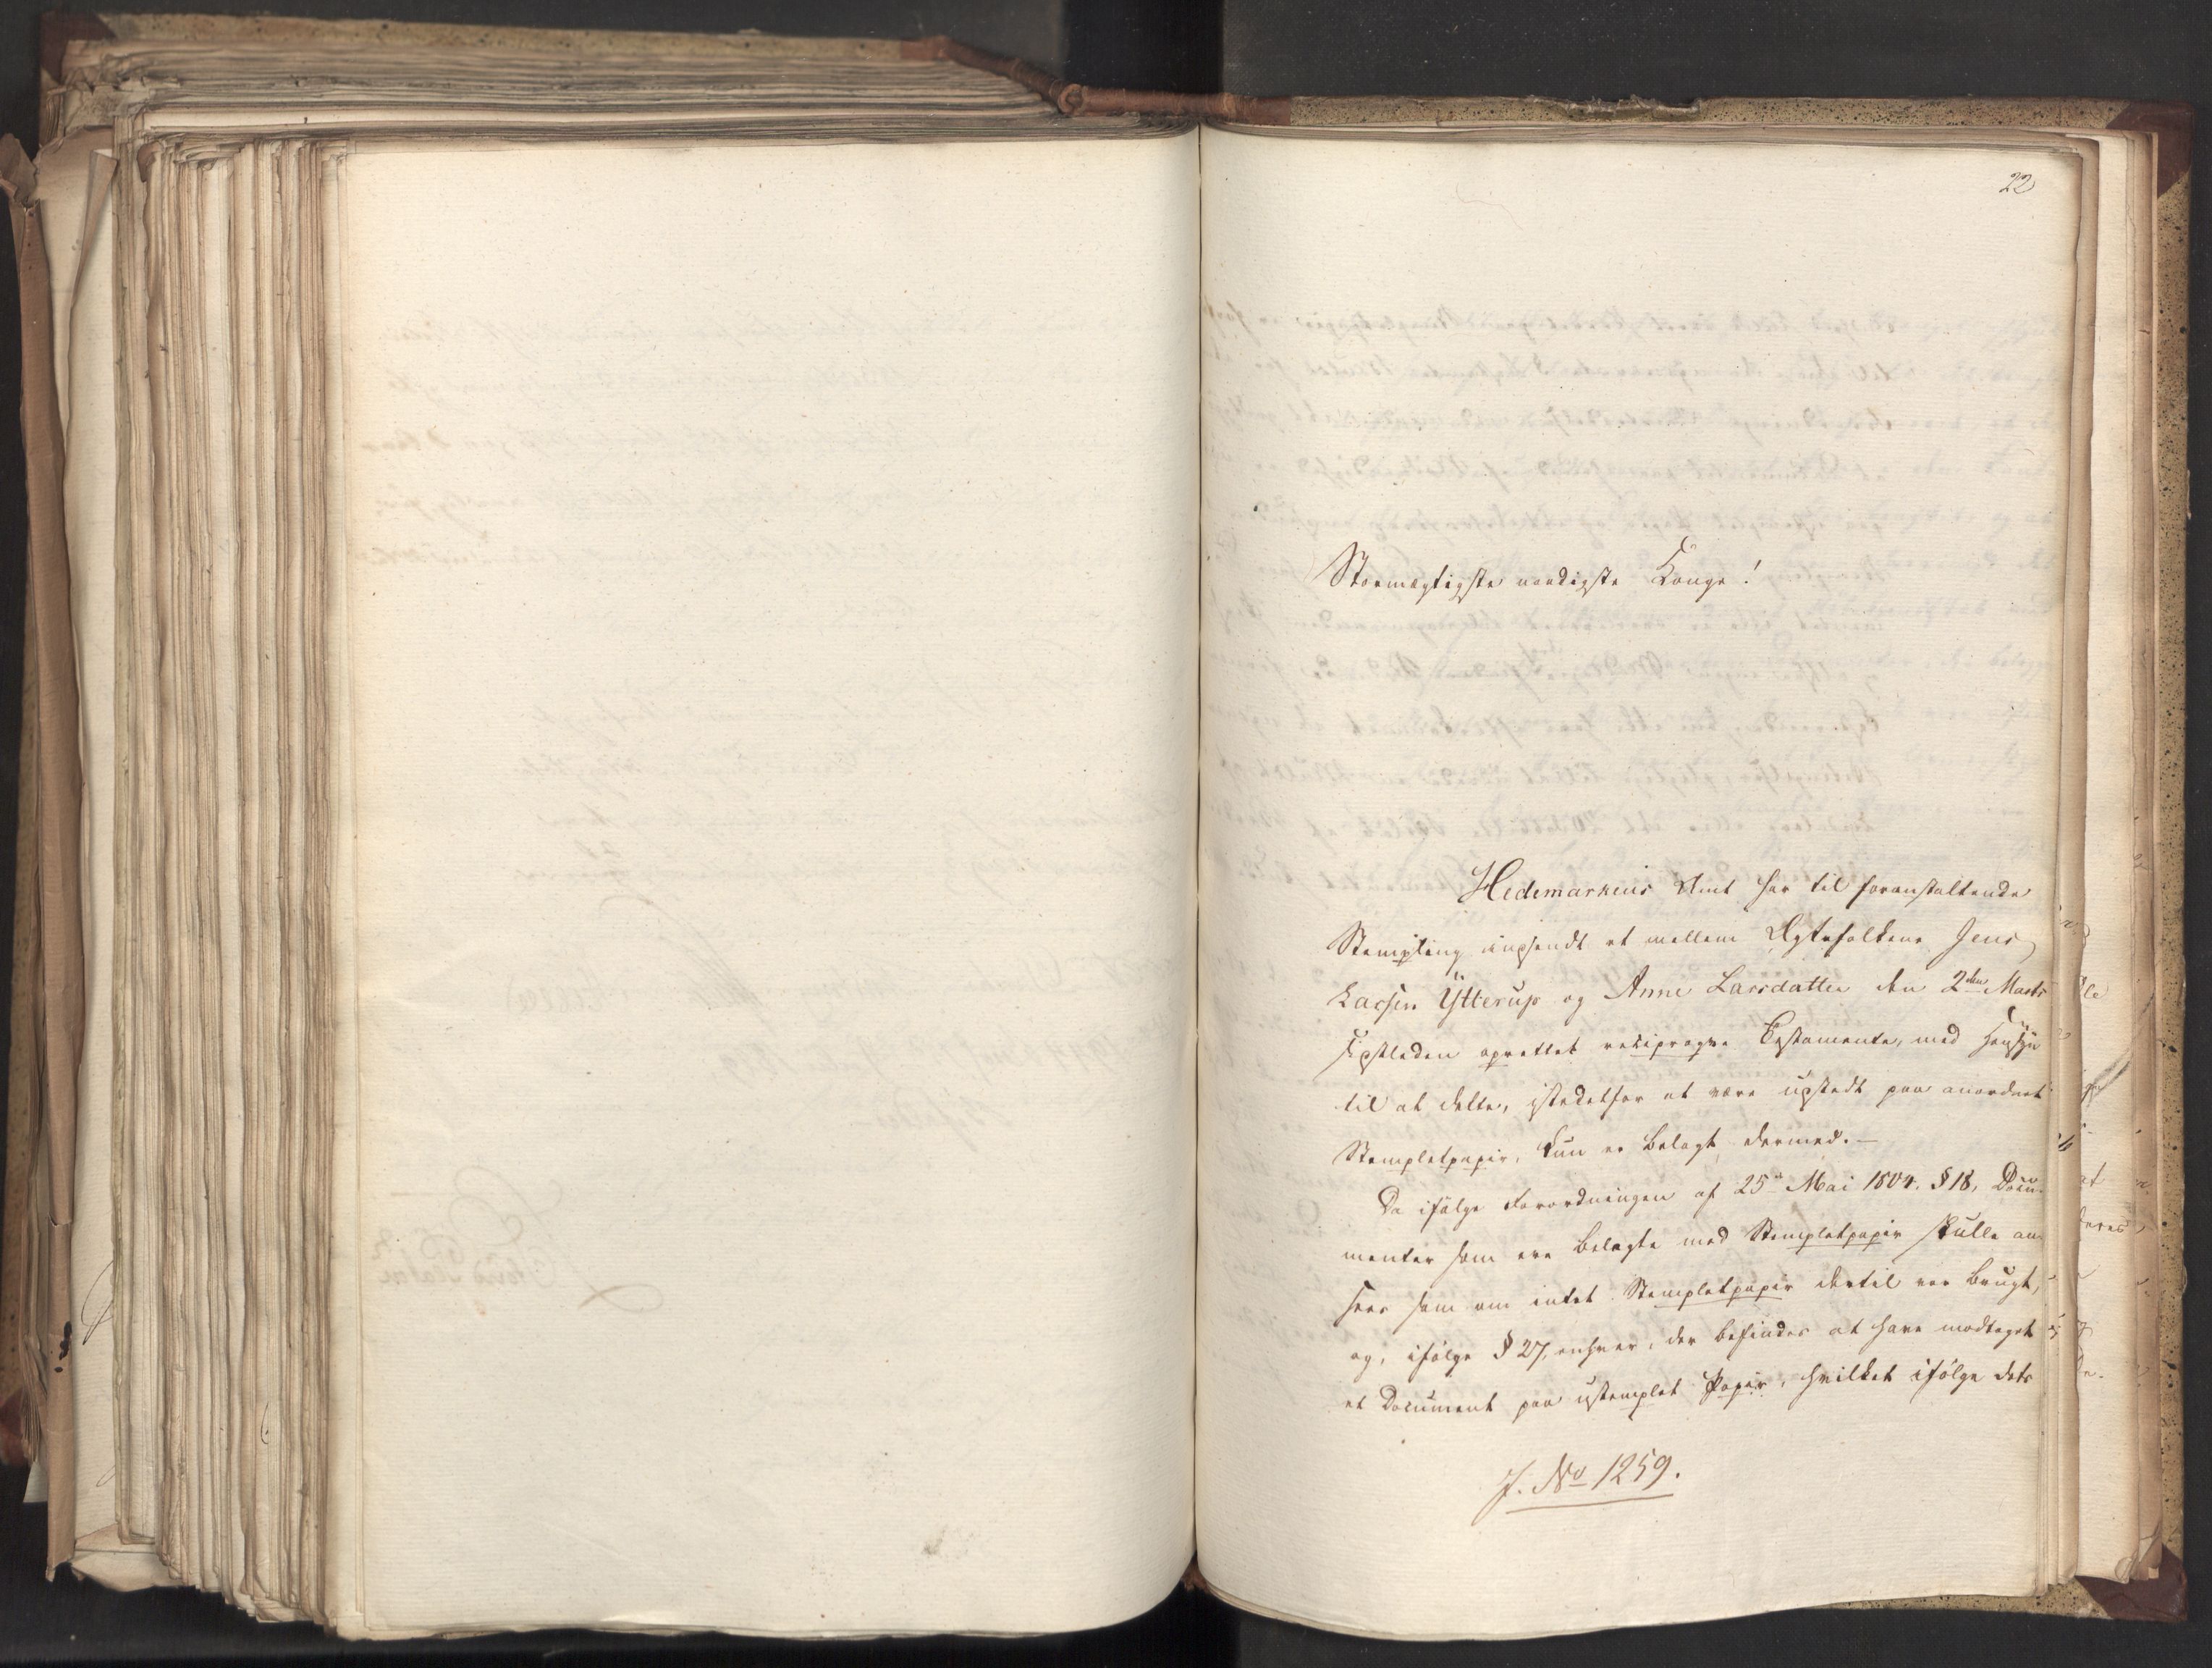 22
Stormægtigste naadigste Konge!
Hedemarkens Amt har til foranstaltende
Stempling indsendt et mellem Ægtefolkene Jens
Larsen Ytterup og Anne Larsdatter den 2den Marts
sidstleden oprettet reciproque Testamente, med Hensyn
til at dette, istedetfor at være udstedt paa anordnet
Stempletpapir, kun er belagt dermed.-
Da ifølge Forordningen af 25de Mai 1804. § 18, Docu-
menter som ere belagte med Stempletpapir skulle an-
sees som om intet Stempletpapir dertil var brugt,
og, ifølge § 27, enhver, der befindes at have modtaget
et Document paa ustemplet Papir, hvilket ifølge dets
J. No 1259.